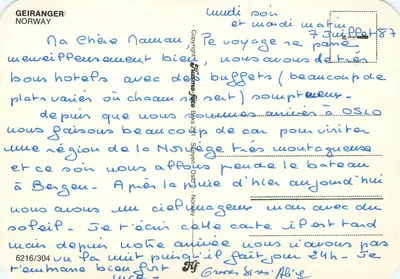 GEIRANGER
NORWAY
lundi soir
et mardi matin
7 Juillet 87
Ma Chère Maman, le voyage se passe
merveilleusement bien, nous avons de très
bons hotels avec des buffets (beaucoup de
plats variés où chacun se sert) somptueux.
depuis que nous sommes arrivés à OSLO
nous faisons beaucoup de car pour visiter
une région de la Norvège très montagneuse
et ce soir nous allons prendre le bateau
à Bergen. Après la pluie d'hier aujourd'hui
nous avons un ciel nuageux mais avec du
soleil. Je t'écris cette carte il est tard
mais depuis notre arrivée nous n'avons pas
vu la nuit puisqu'il fait jour 24h. Je
t'embrasse bien fort
Grosses Bises. Aline
6216/304